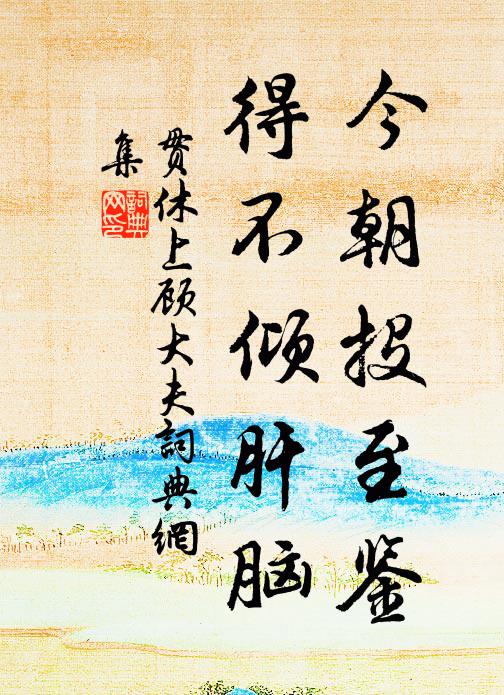 今朝投至鉴
得不倾肝脑
贯休上顾大夫詞典網
集
詞典
网印